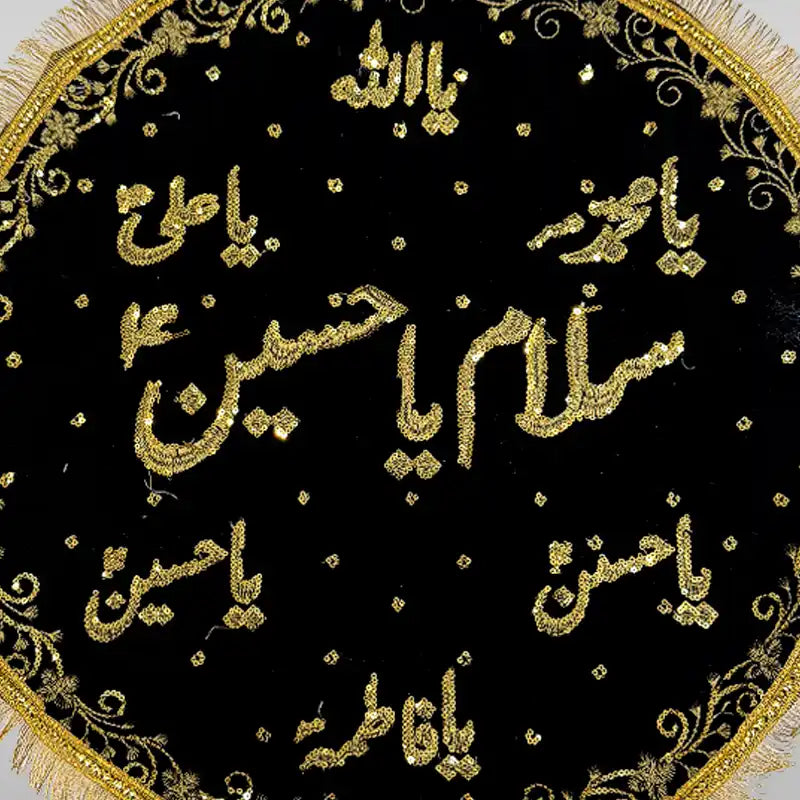 یا الله
یا محمد یا علی ع
سلام یا حسین ع
یا حسن یا حسین
یا فاطمه